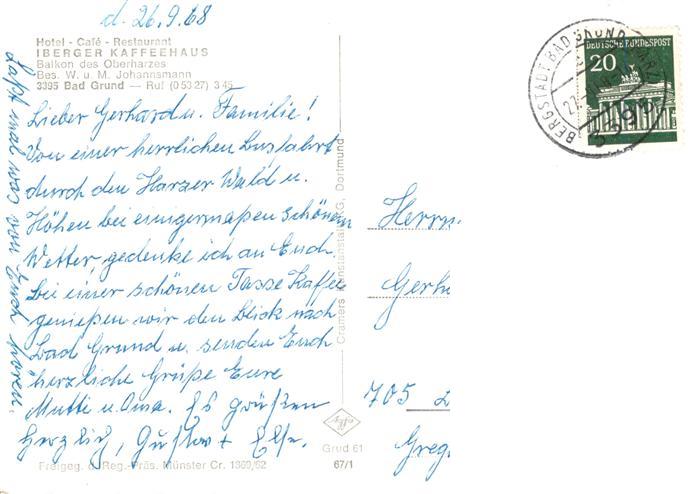 d. 26.9.68
Hotel - Café - Restaurant
IBERGER KAFFEEHAUS
Balkon des Oberharzes
Bes. W. u. M. Johannsmann
3395 Bad Grund — Ruf (0 53 27) 3 45
Lieber Gerhard u. Familie!
Von einer herrlichen Busfahrt
durch den Harzer Wald u.
Höhen bei einigermaßen schönem
Wetter, gedenke ich an Euch.
Bei einer schönen Tasse Kaffee
genießen wir den Blick nach
Bad Grund u. senden Euch
herzliche Grüße Eure
Mutti u. Oma. Es grüßen
herzlich, Gustav + Else.
Laßt mal was von Euch hören.
Freigeg. d. Reg.-Präs. Münster Cr. 1369/62
Cramers Kunstanstalt KG, Dortmund
Grud 61
67/1
BERGSTADT BAD GRUND (HARZ)
3395
DEUTSCHE BUNDESPOST
20
Herrn
Gerh
705
Greg